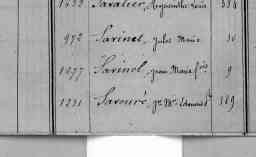 Savalier, Hyacinthe Louis 338
972 Savinel, Jules Marie 30
1077 Savinel, Jean Marie f.ois 9
1231 Savouré, J.n M.ie Edmond 389